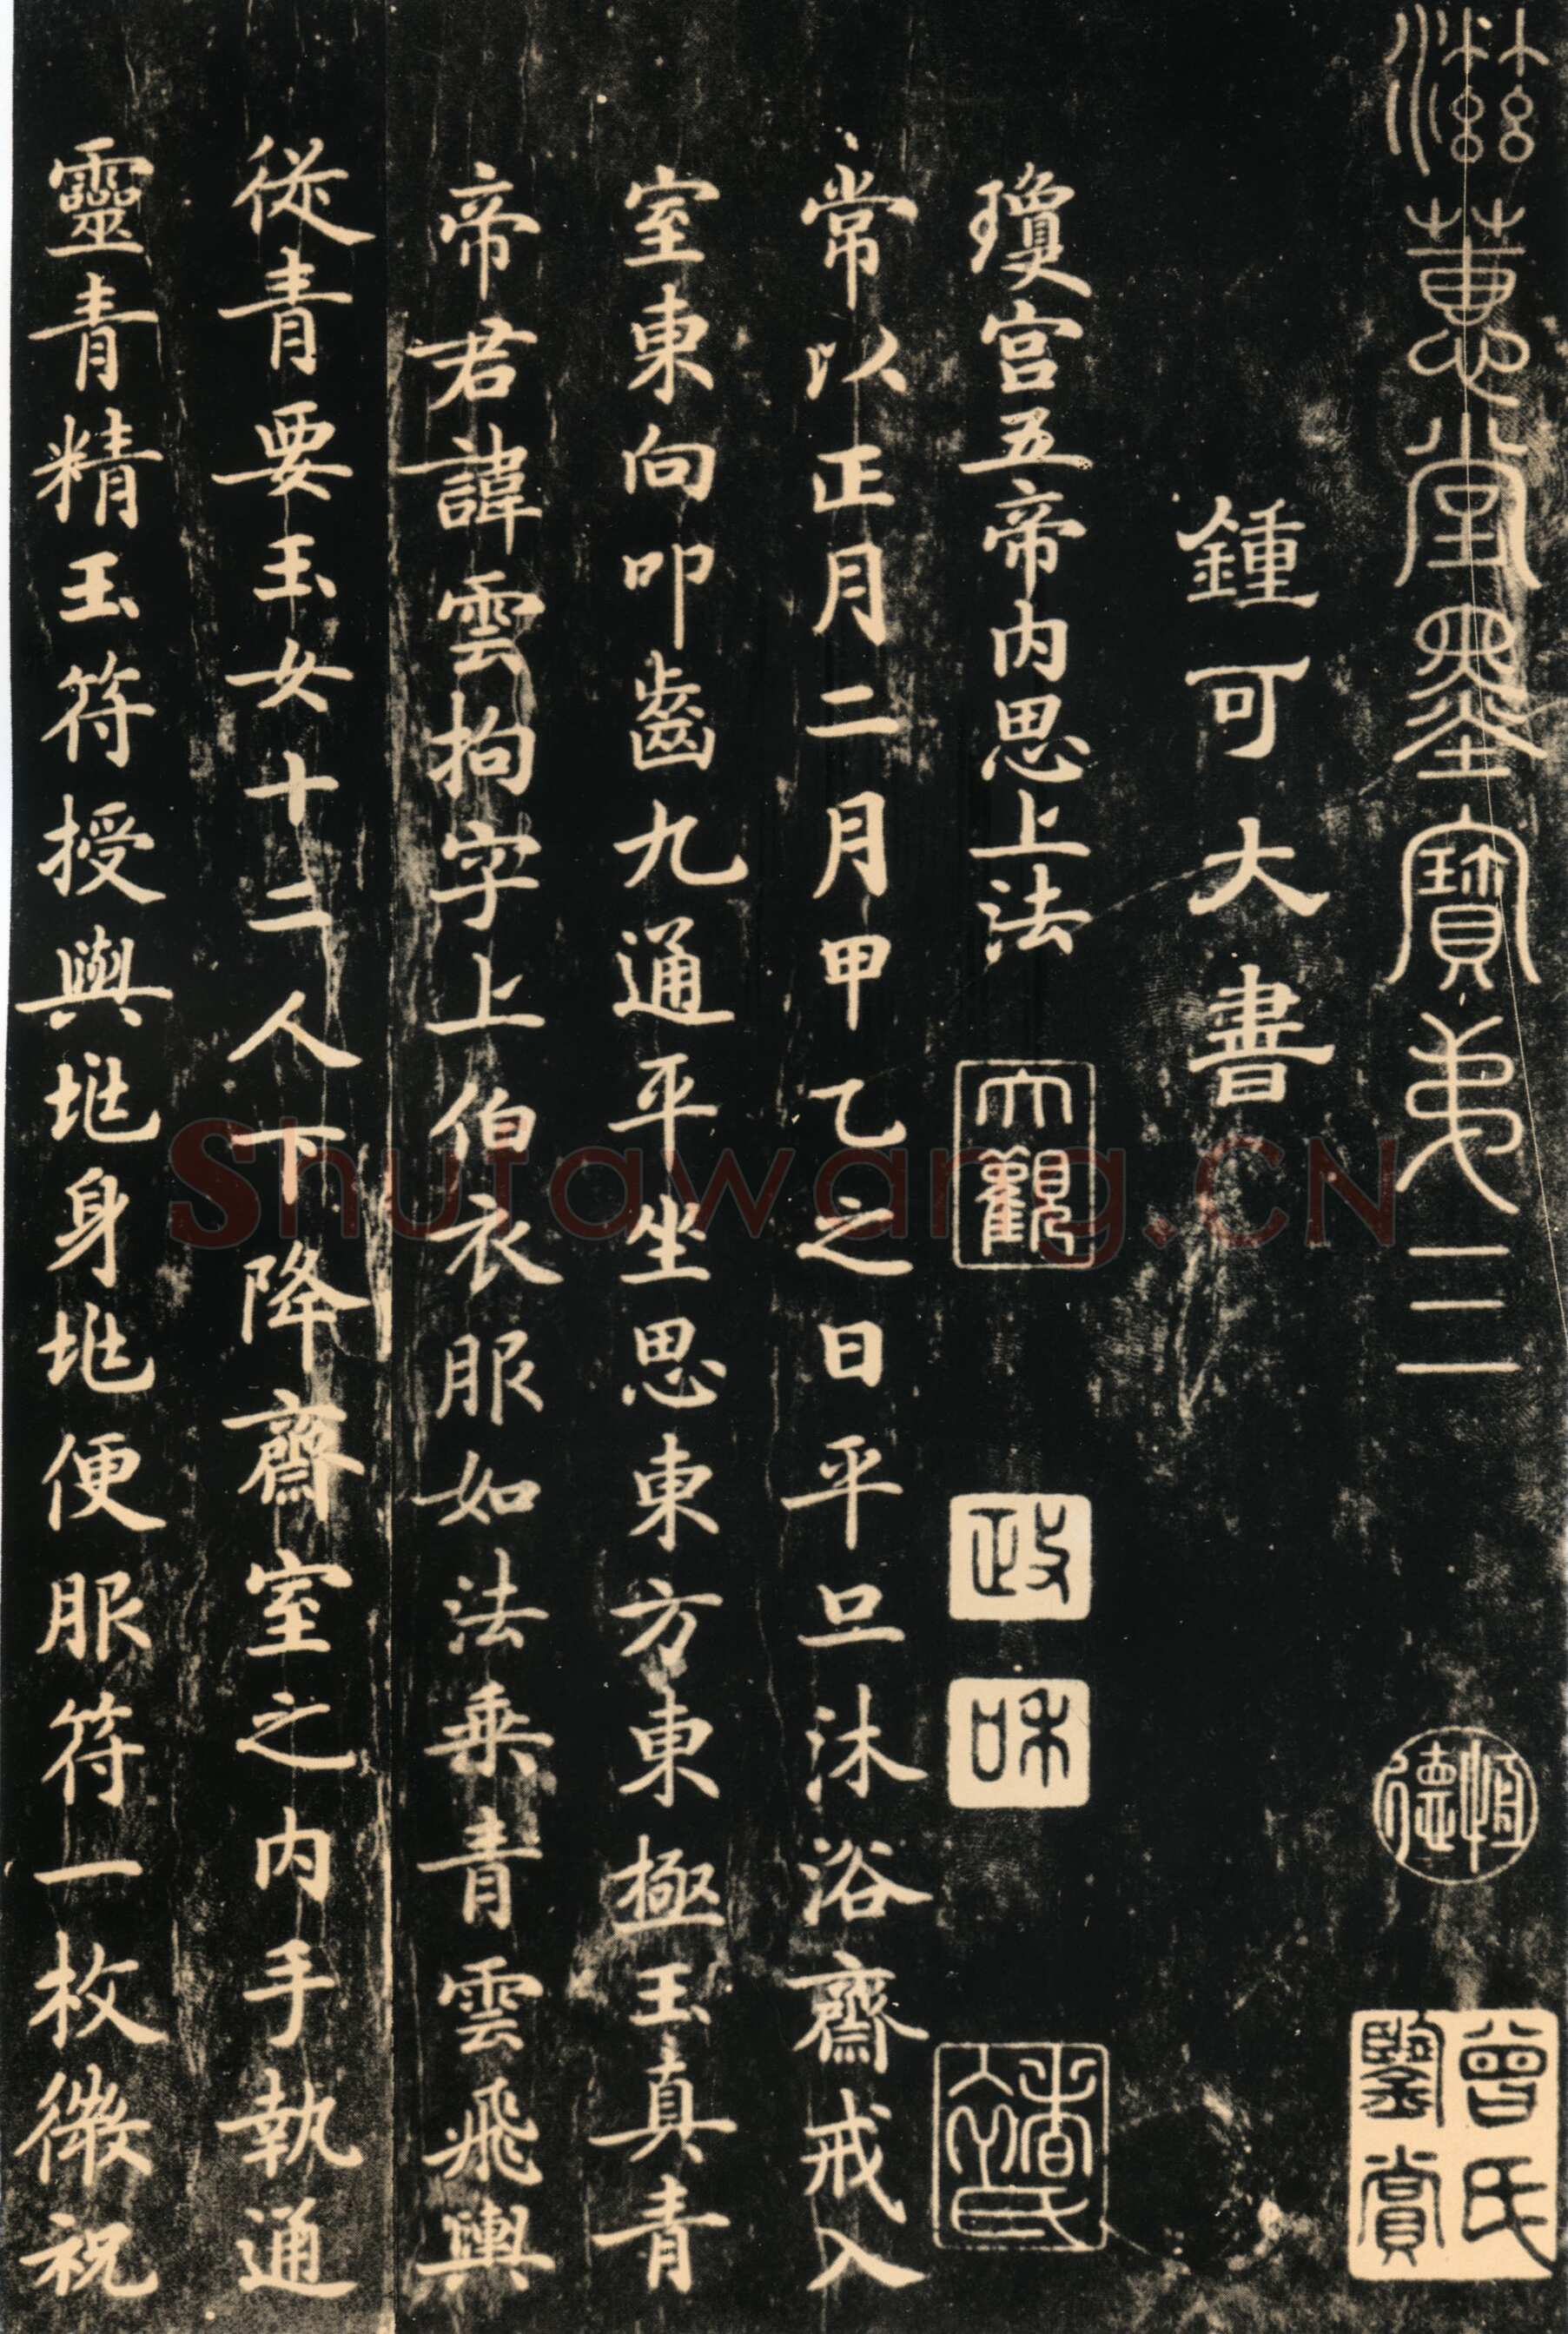 滋蕙堂墨寶第三
恒德
曾氏鑒賞
鍾可大書
瓊宮五帝內思上法
大觀
政
和
常以正月二月甲乙之日平旦沐浴齋戒入
室東向叩齒九通平坐思東方東極玉真青
帝君諱雲拘字上伯衣服如法乘青雲飛輿
從青要玉女十二人下降齋室之內手執通
靈青精玉符授與𡉏身𡉏便服符一枚微祝
Shufawang.CN